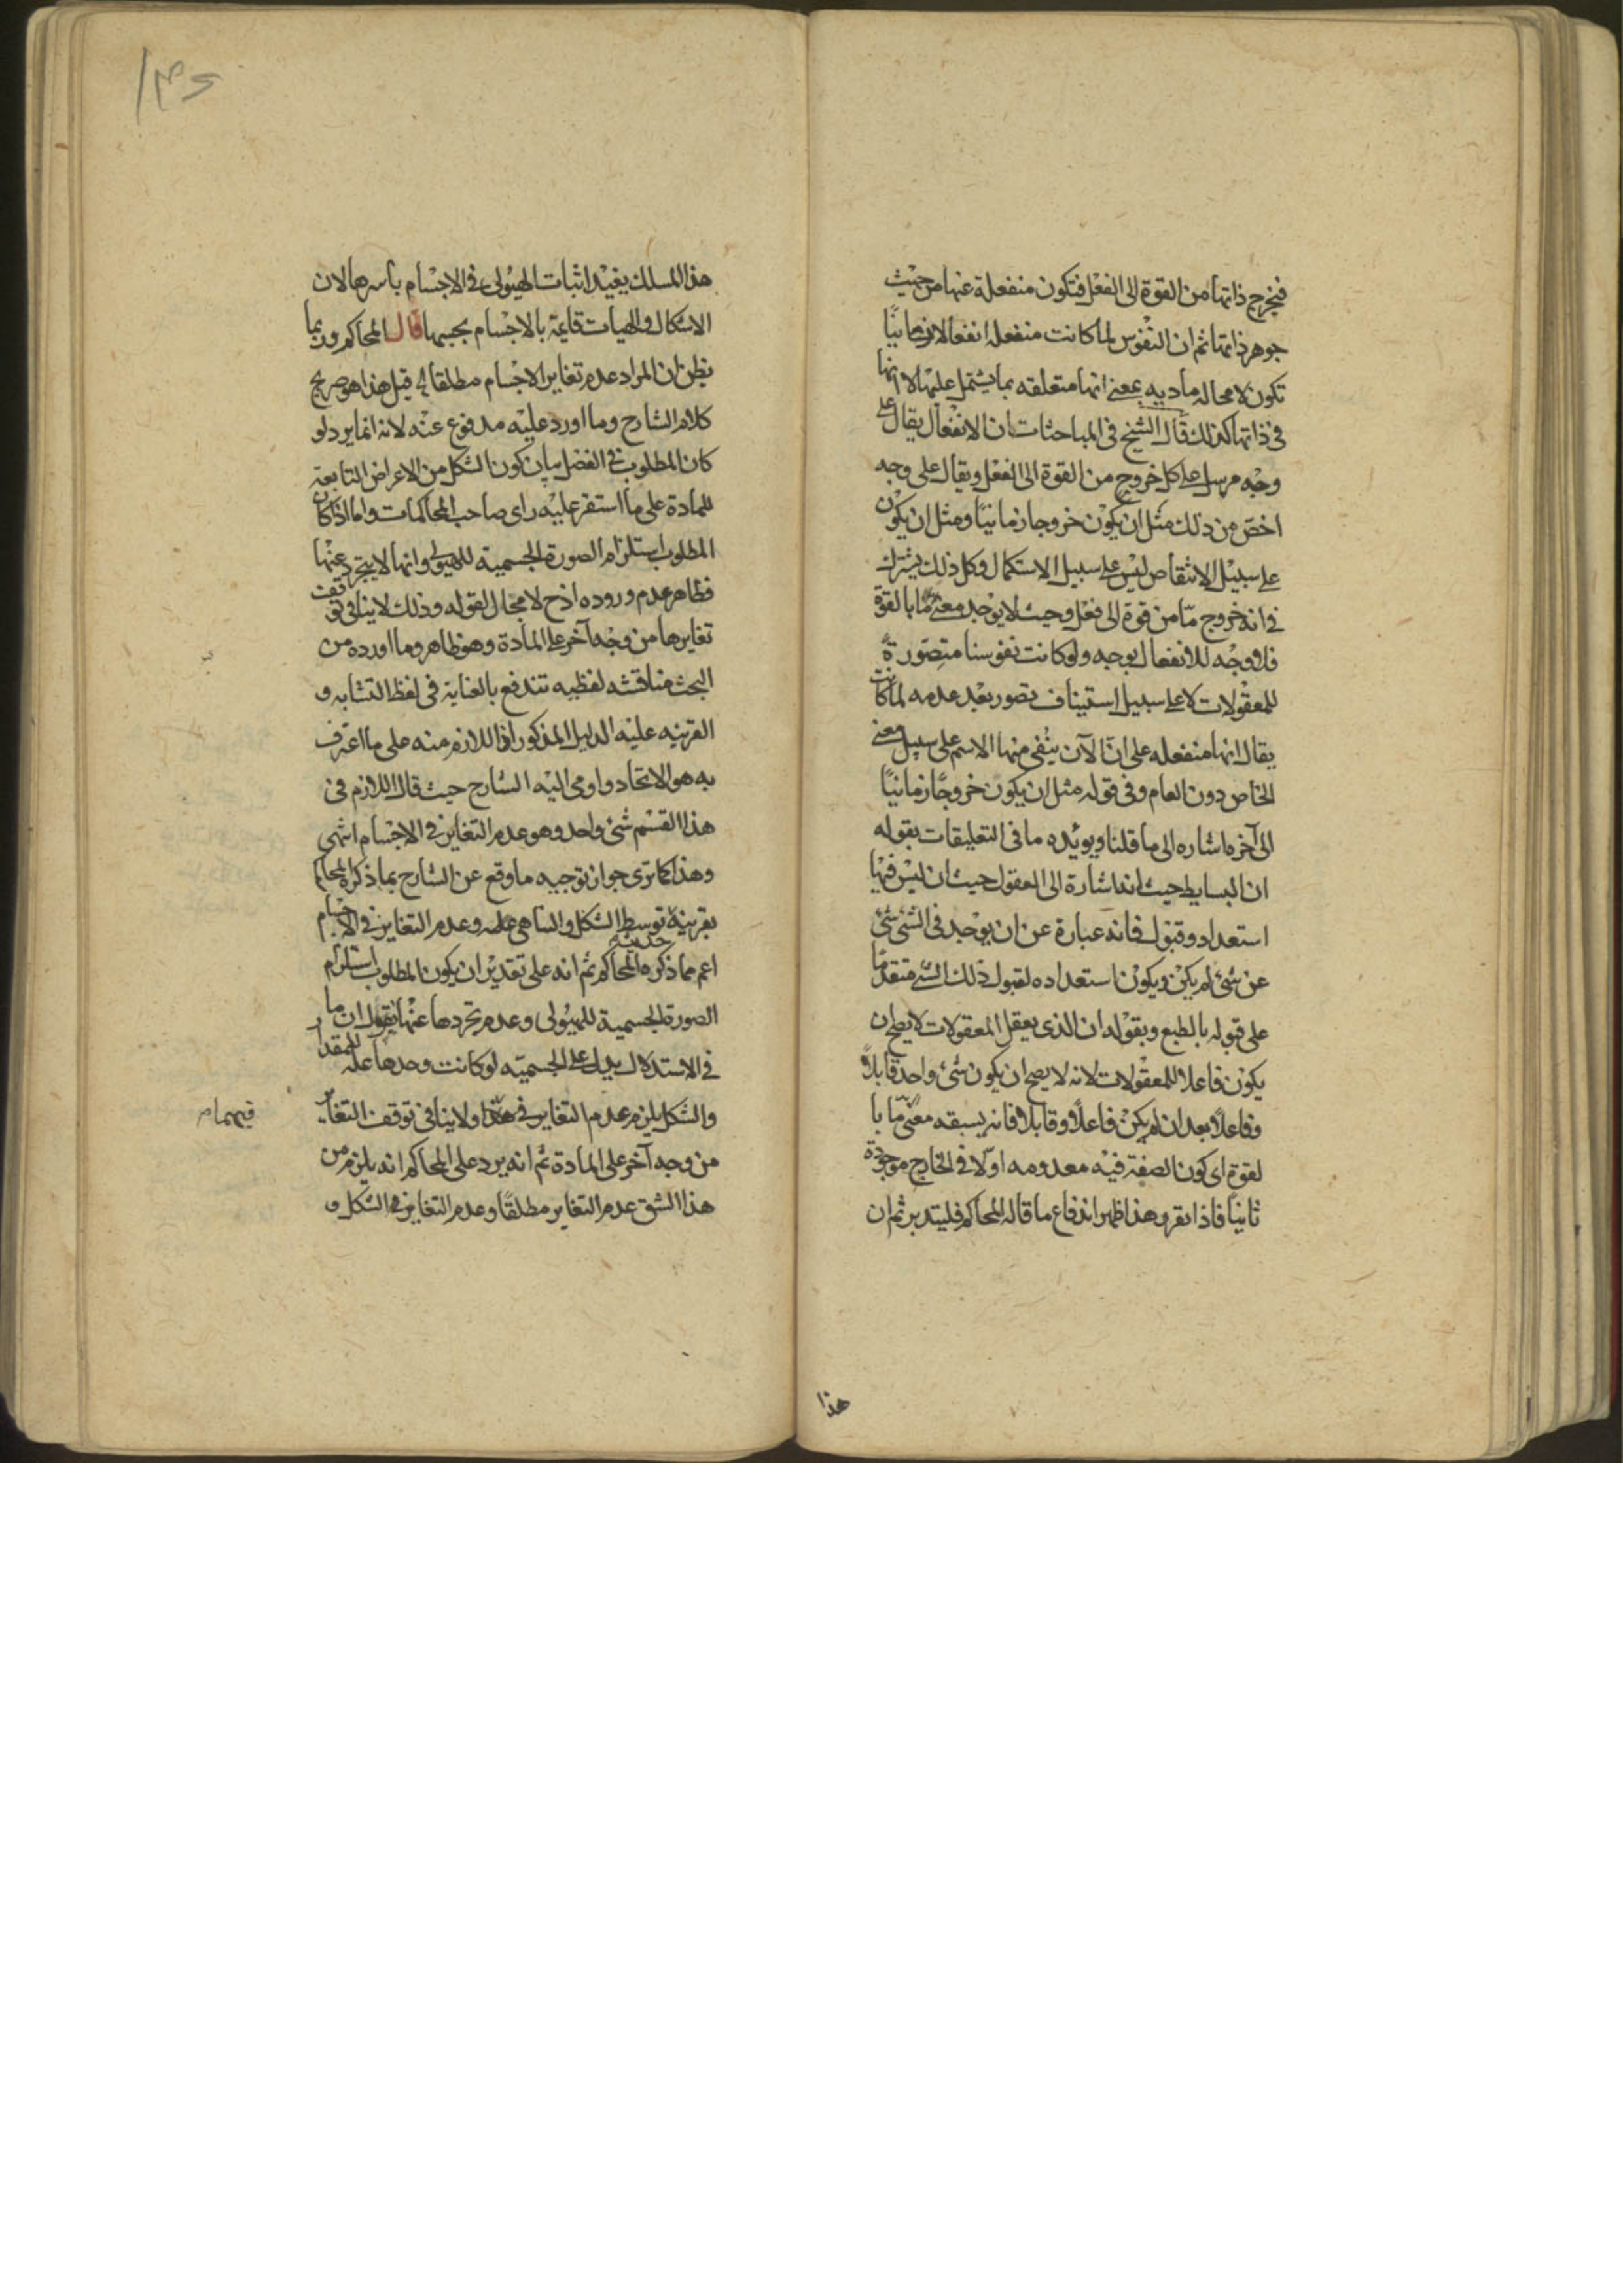 فيخرج ذاتها من القوة الى الفعل فتكون منفعلة عنها من حيث
جوهر ذاتها ثم ان النفوس لما كانت منفعله انفعالا زمانيًا
تكون لا محاله ماديه بمعنى انها متعلقه بما يشتمل عليها لا انها
فى ذاتها كذلك قال الشيخ فى المباحثات ان الانفعال يقال على
وجه مرسل على كل خروج من القوة الى الفعل ويقال على وجه
اخص من ذلك مثل ان يكون خروجا زمانيًا ومثل ان يكون
على سبيل الانتقاص ليس على سبيل الاستكمال وكل ذلك يشترك
فى انه خروج مّا من قوة الى فعل وحيث لا يوجد معنى ما بالقوة
فلا وجه للانفعال بوجه ولو كانت نفوسنا متصورة
للمعقولات لا على سبيل استيناف تصور بعد عدمه لما كانت
يقال انها منفعله على انّ الآن ينفى منها الاسم على سبيل معنى
الخاص دون العام وفى قوله مثل ان يكون خروجًا زمانيًا
الى آخره اشاره الى ما قلنا ويؤيده ما فى التعليقات بقوله
ان البسايط حيث انه اشارة الى العقول حيث ان ليس فيها
استعداد وقبول فانه عبارة عن ان يوجد فى الشئ شئ
عن شئ لم يكن ويكون استعداده لقبول ذلك الشئ متقدمًا
على قبوله بالطبع وبقوله ان الذى يعقل المعقولات لا يصح ان
يكون فاعلا للمعقولات لانه لا يصح ان يكون شئ واحد قابلاً
وفاعلاً بعد ان لم يكن فاعلاً وقابلا فانه يسبقه معنى مّا با
لقوة اى كون الصفة فيه معدومه اوّلا فى الخارج موجودة
ثانيًا فاذا تقرر هذا ظهر اندفاع ما قاله المحاكم فليتدبر ثم ان
هذا
هذا المسلك يفيد اثبات الهيولى فى الاجسام باسرها لان
الاشكال والهيات قايمة بالاجسام بجسمها قال المحاكم وربما
يظن ان المراد عدم تغاير الاجسام مطلقا قيل هذا هو صريح
كلام الشارح وما اورد عليه مدفوع عنه لانه انما يرد لو
كان المطلوب فى الفصل بيان كون الشكل من الاعراض التابعة
للمادة على ما استقر عليه راى صاحب المحاكمات واما اذا كان
المطلوب استلزام الصورة الجسمية للهيولى وانها لا يتجرد عنها
فظاهر عدم وروده اذ ح لا مجال لقوله وذلك لا ينافى توقف
تغايرها من وجه آخر على المادة وهو ظاهر وما اورده من
البحث مناقشه لفظيه تندفع بالعناية فى لفظ التشابه و
القرينه عليه الدليل المذكور اذ اللازم منه على ما اعترف
به هو الاتحاد واومى اليه الشارح حيث قال اللازم فى
هذا القسم شئ واحد وهو عدم التغاير فى الاجسام انتهى
وهذا كما ترى جواز توجيه ما وقع عن الشارح بما ذكره المحاكم
بقرينة توسط الشكل والتناهى وعدم التغاير فى الاجسام
اعم مما ذكره المحاكم ثم انه على تقدير ان يكون المطلوب استلزام
الصورة الجسمية للهيولى وعدم تجردها عنها يقول ان ما
فى الاستدلال يدل على الجسميّه لو كانت وحدها علة للمقدار
والشكل يلزم عدم التغاير فى هذا ولا ينافى توقف التغاير
من وجه آخر على المادة ثم انه يرد على المحاكم انه يلزم من
هذا الشق عدم التغاير مطلقًا وعدم التغاير فى الشكل و